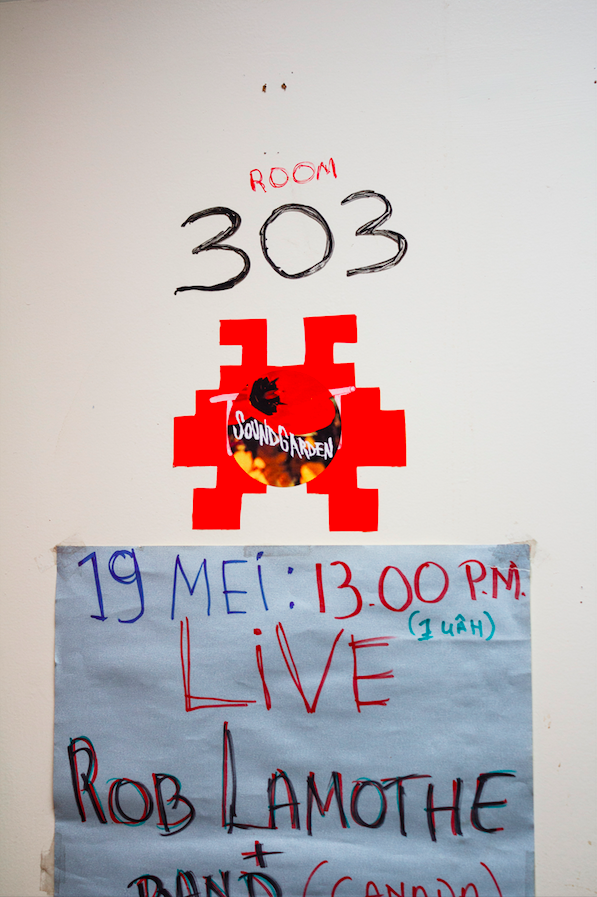 ROOM
303
SOUNDGARDEN
19 MEi: 13.00 P.M.
(1 UÂH)
LiVE
ROB LAMOTHE
+
BAND (CANADA)